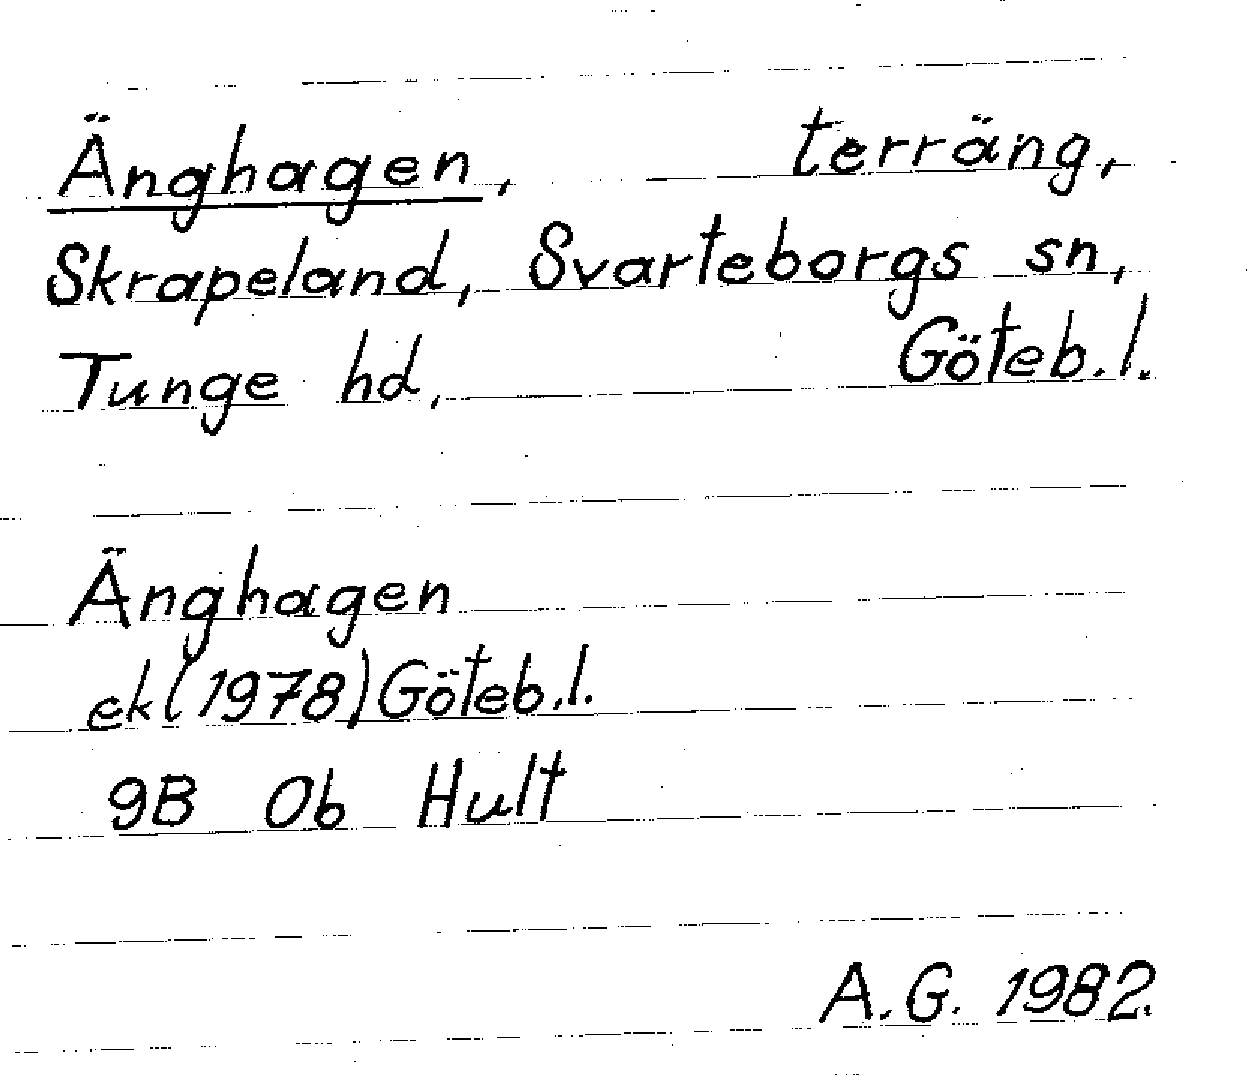 Änghagen, terräng,
Skrapeland, Svarteborgs sn,
Tunge hd, Göteb.l.
Änghagen
ek(1978)Göteb.l.
9B 0b Hult
A.G. 1982.